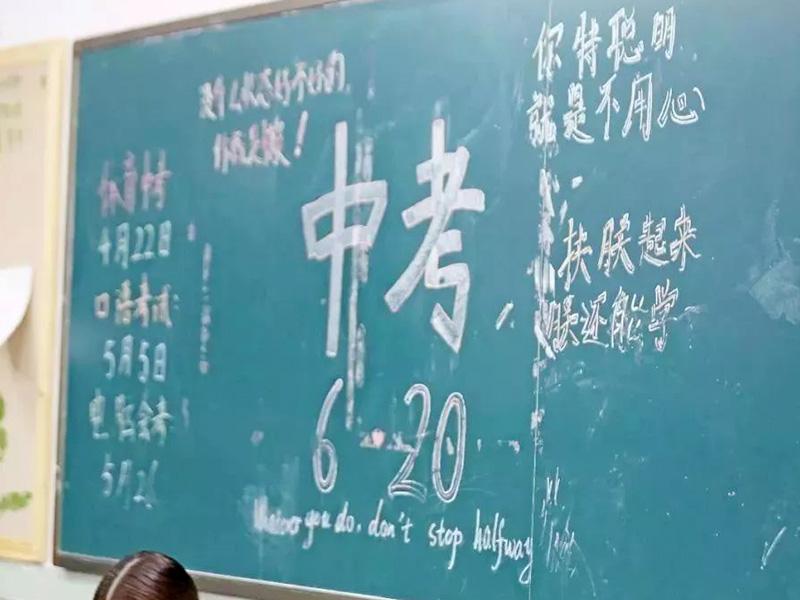 体育中考
4月22日
口语考试
5月5日
电脑会考
5月2
没什么状态好不好的
你而之娘!
中考
6 20
you do, don't stop halfway
你特聪明
就是不用心
扶朕起来
朕还能学